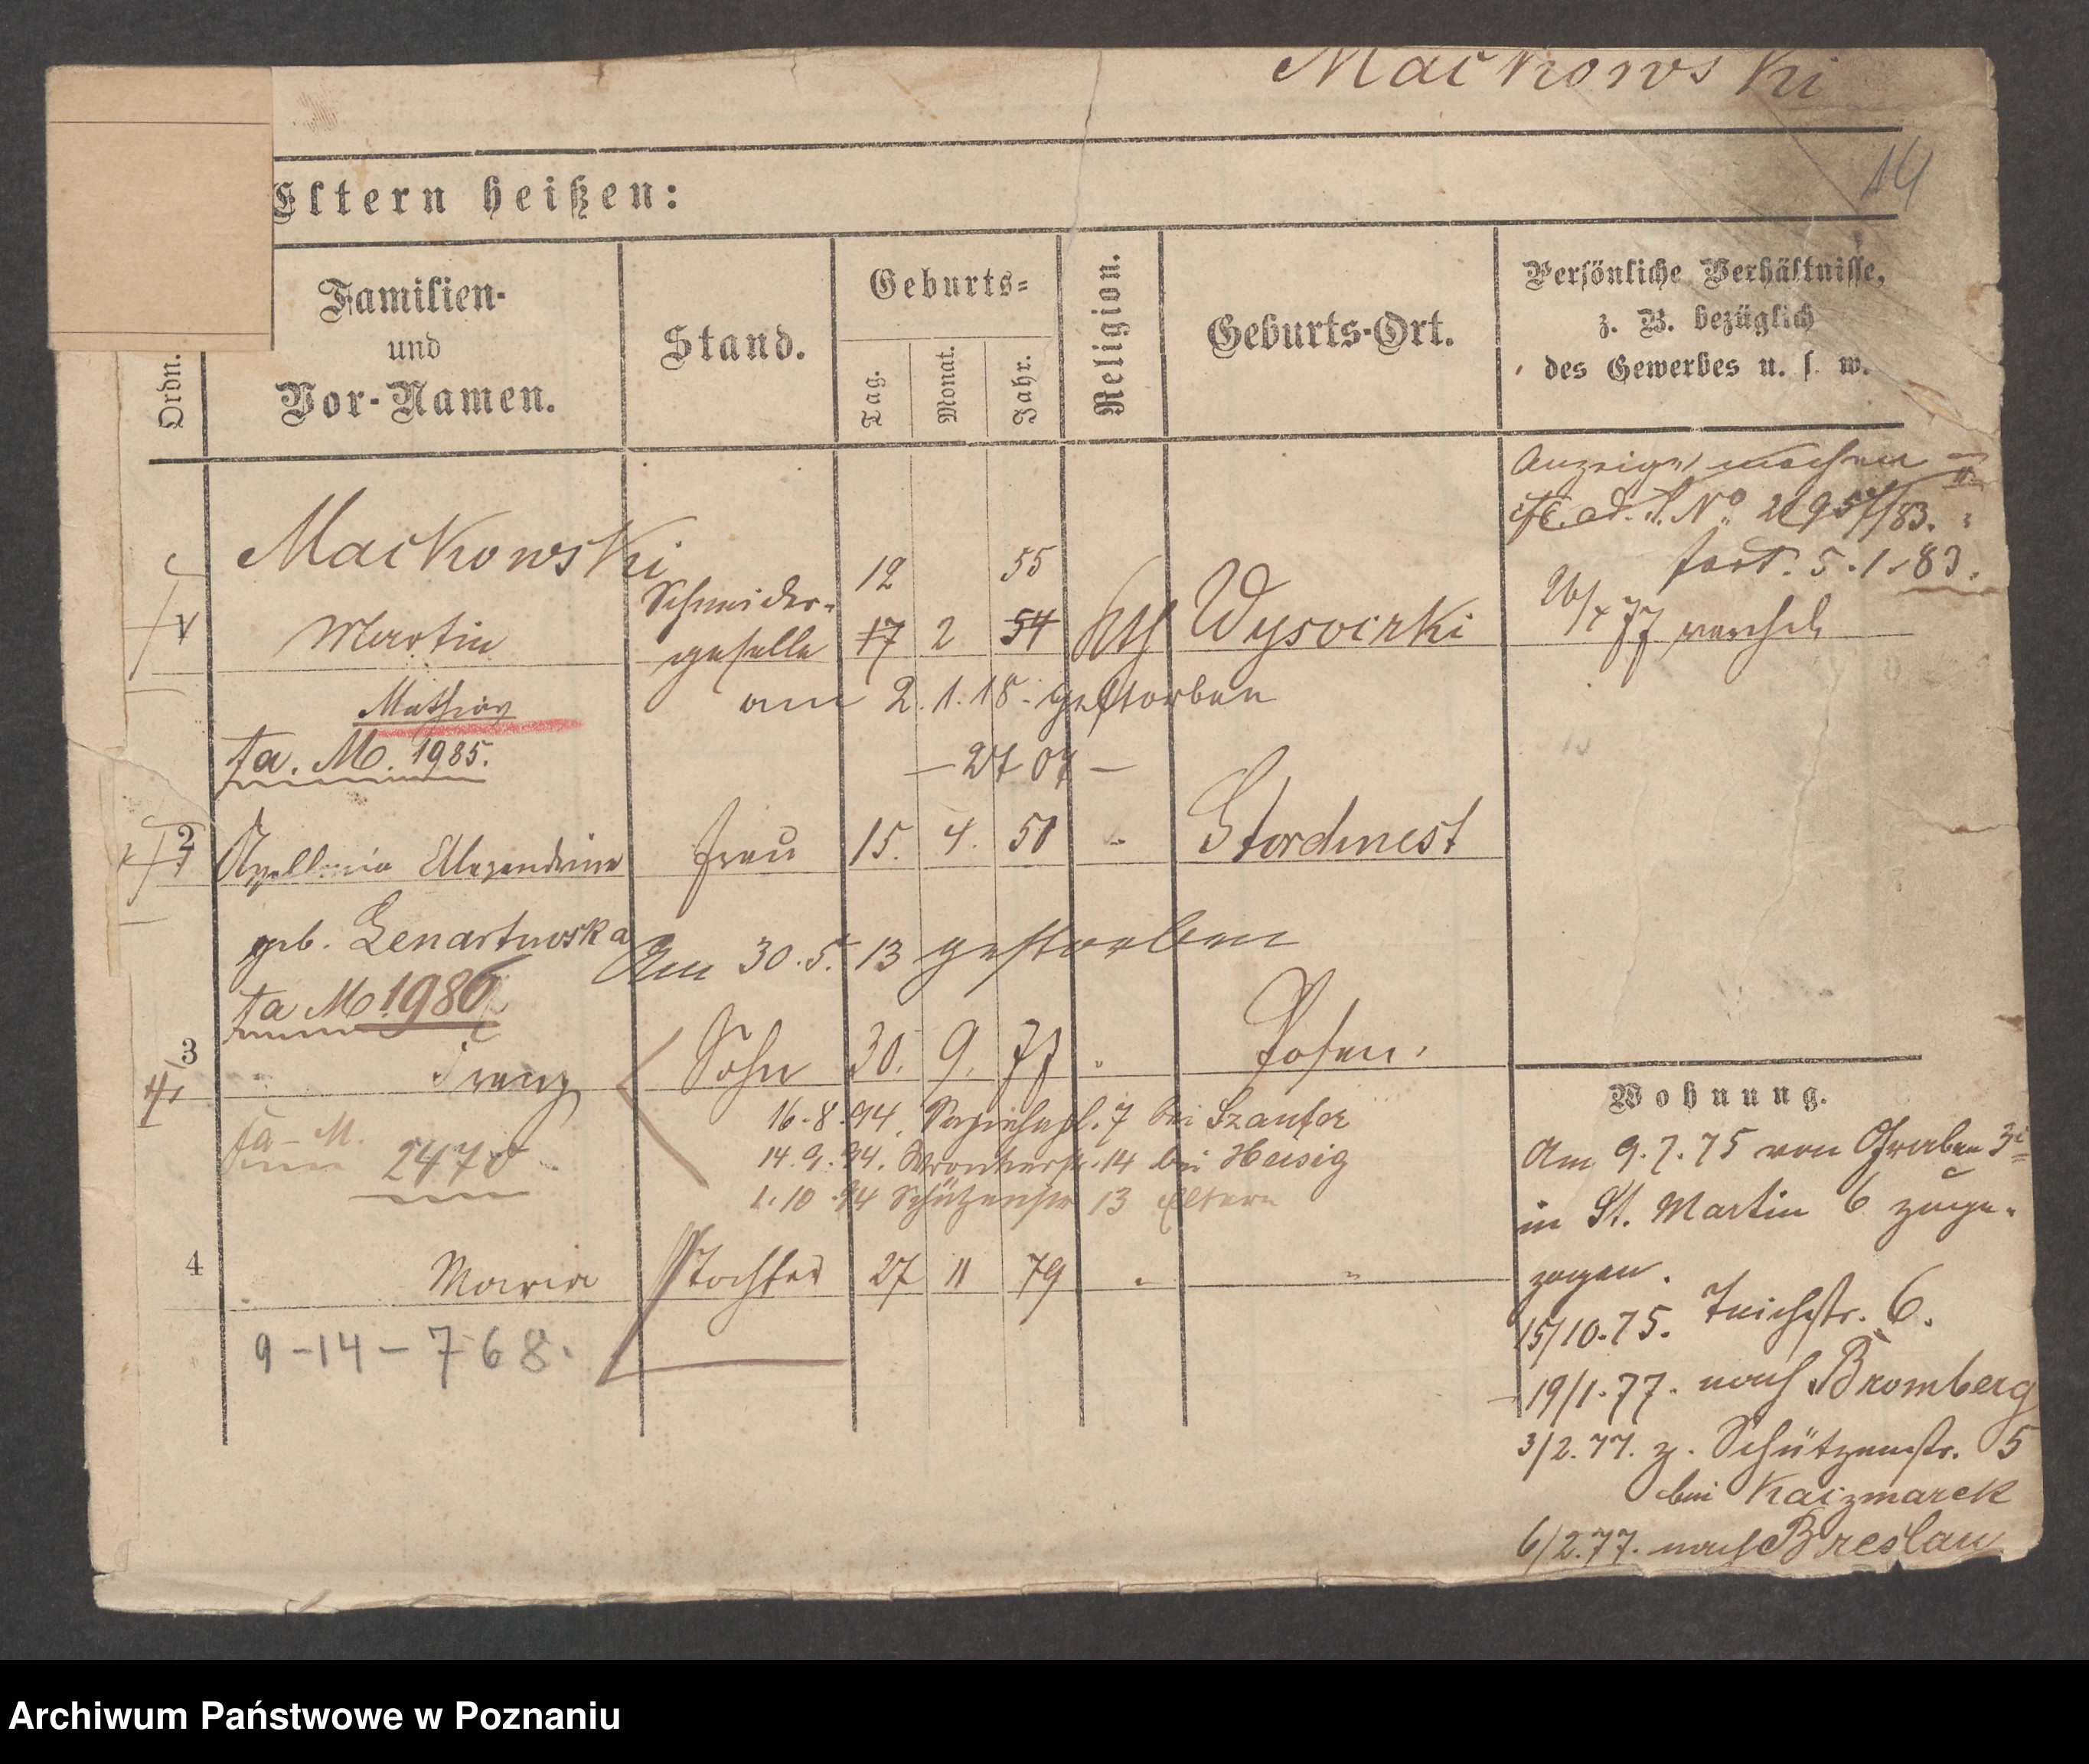 Mackowski
14
Eltern heißen:
Ordn.
Familien-
und
Vor-Namen.
Stand.
Geburts-
Tag.
Monat.
Jahr.
Religion.
Geburts-Ort.
Persönliche Verhältnisse,
z. B. bezüglich
des Gewerbes u. s. w.
Anzeige machen
fort. 5.1.83.
Mackowski
Martin
Schneider-
geselle
12
17
2
55
54
Kth
26/ 77
am 2.1.18. gestorben
Mathias
ta. M. 1985.
2
Apollonia Alexandrine
Frau
15.
4.
50
Stordnest
geb. Lenartowska
Am 30.5.13 gestorben
ta M. 1986
3
Franz
Sohn
30.
9.
77
Posen.
ta-M.
2470
16.8.94. Sapiehapl. 7 bei
14.9.94. Wronkerstr. 14 bei Heisig
1.10.94 Schützenstr 13 Eltern
4
Maria
Tochter
27
11
79
"
9-14-768.
Wohnung.
Am 9.7.75 von Graben
in St. Martin 6 zuge-
zogen.
15/10.75. Teichstr. 6.
19/1.77. nach Bromberg
3/2.77. z. Schützenstr. 5
bei Kaczmarek
6/2.77. nach Breslau
Archiwum Państwowe w Poznaniu